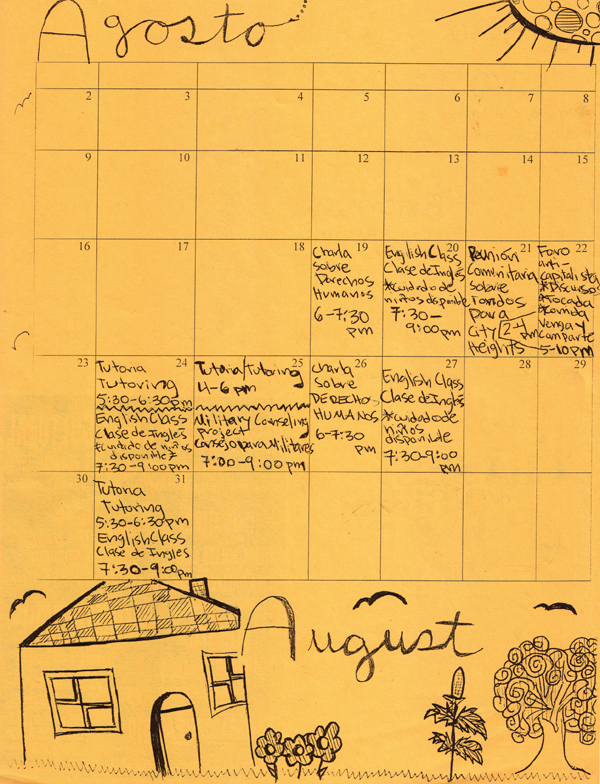 Agosto
2
3
4
5
6
7
8
9
10
11
12
13
14
15
16
17
18
19
Charla
sobre
Derechos
Humanos
6-7:30
pm
20
English Class
Clase de Inglés
*cuidado de
niños disponible
7:30-
9:00pm
21
Reunión
Comunitaria
sobre
Fondos
para
City 2-4pm
Heights
22
Foro
anti-
capitalista
*Discursos
*Tocada
*Comida
Venga y
Comparte
5-10pm
23
24
Tutoria
Tutoring
5:30-6:30pm
English Class
Clase de Ingles
*cuidado de niños
disponible*
7:30-9:00pm
25
Tutoria/Tutoring
4-6pm
Military Counseling
project
Consejo para Militares
7:00-9:00pm
26
Charla
sobre
DERECHOS
HUMANOS
6-7:30
pm
27
English Class
Clase de Inglés
*cuidado de
niños
disponible
7:30-9:00
pm
28
29
30
31
Tutoria
Tutoring
5:30-6:30pm
English Class
Clase de Ingles
7:30-9:00pm
August